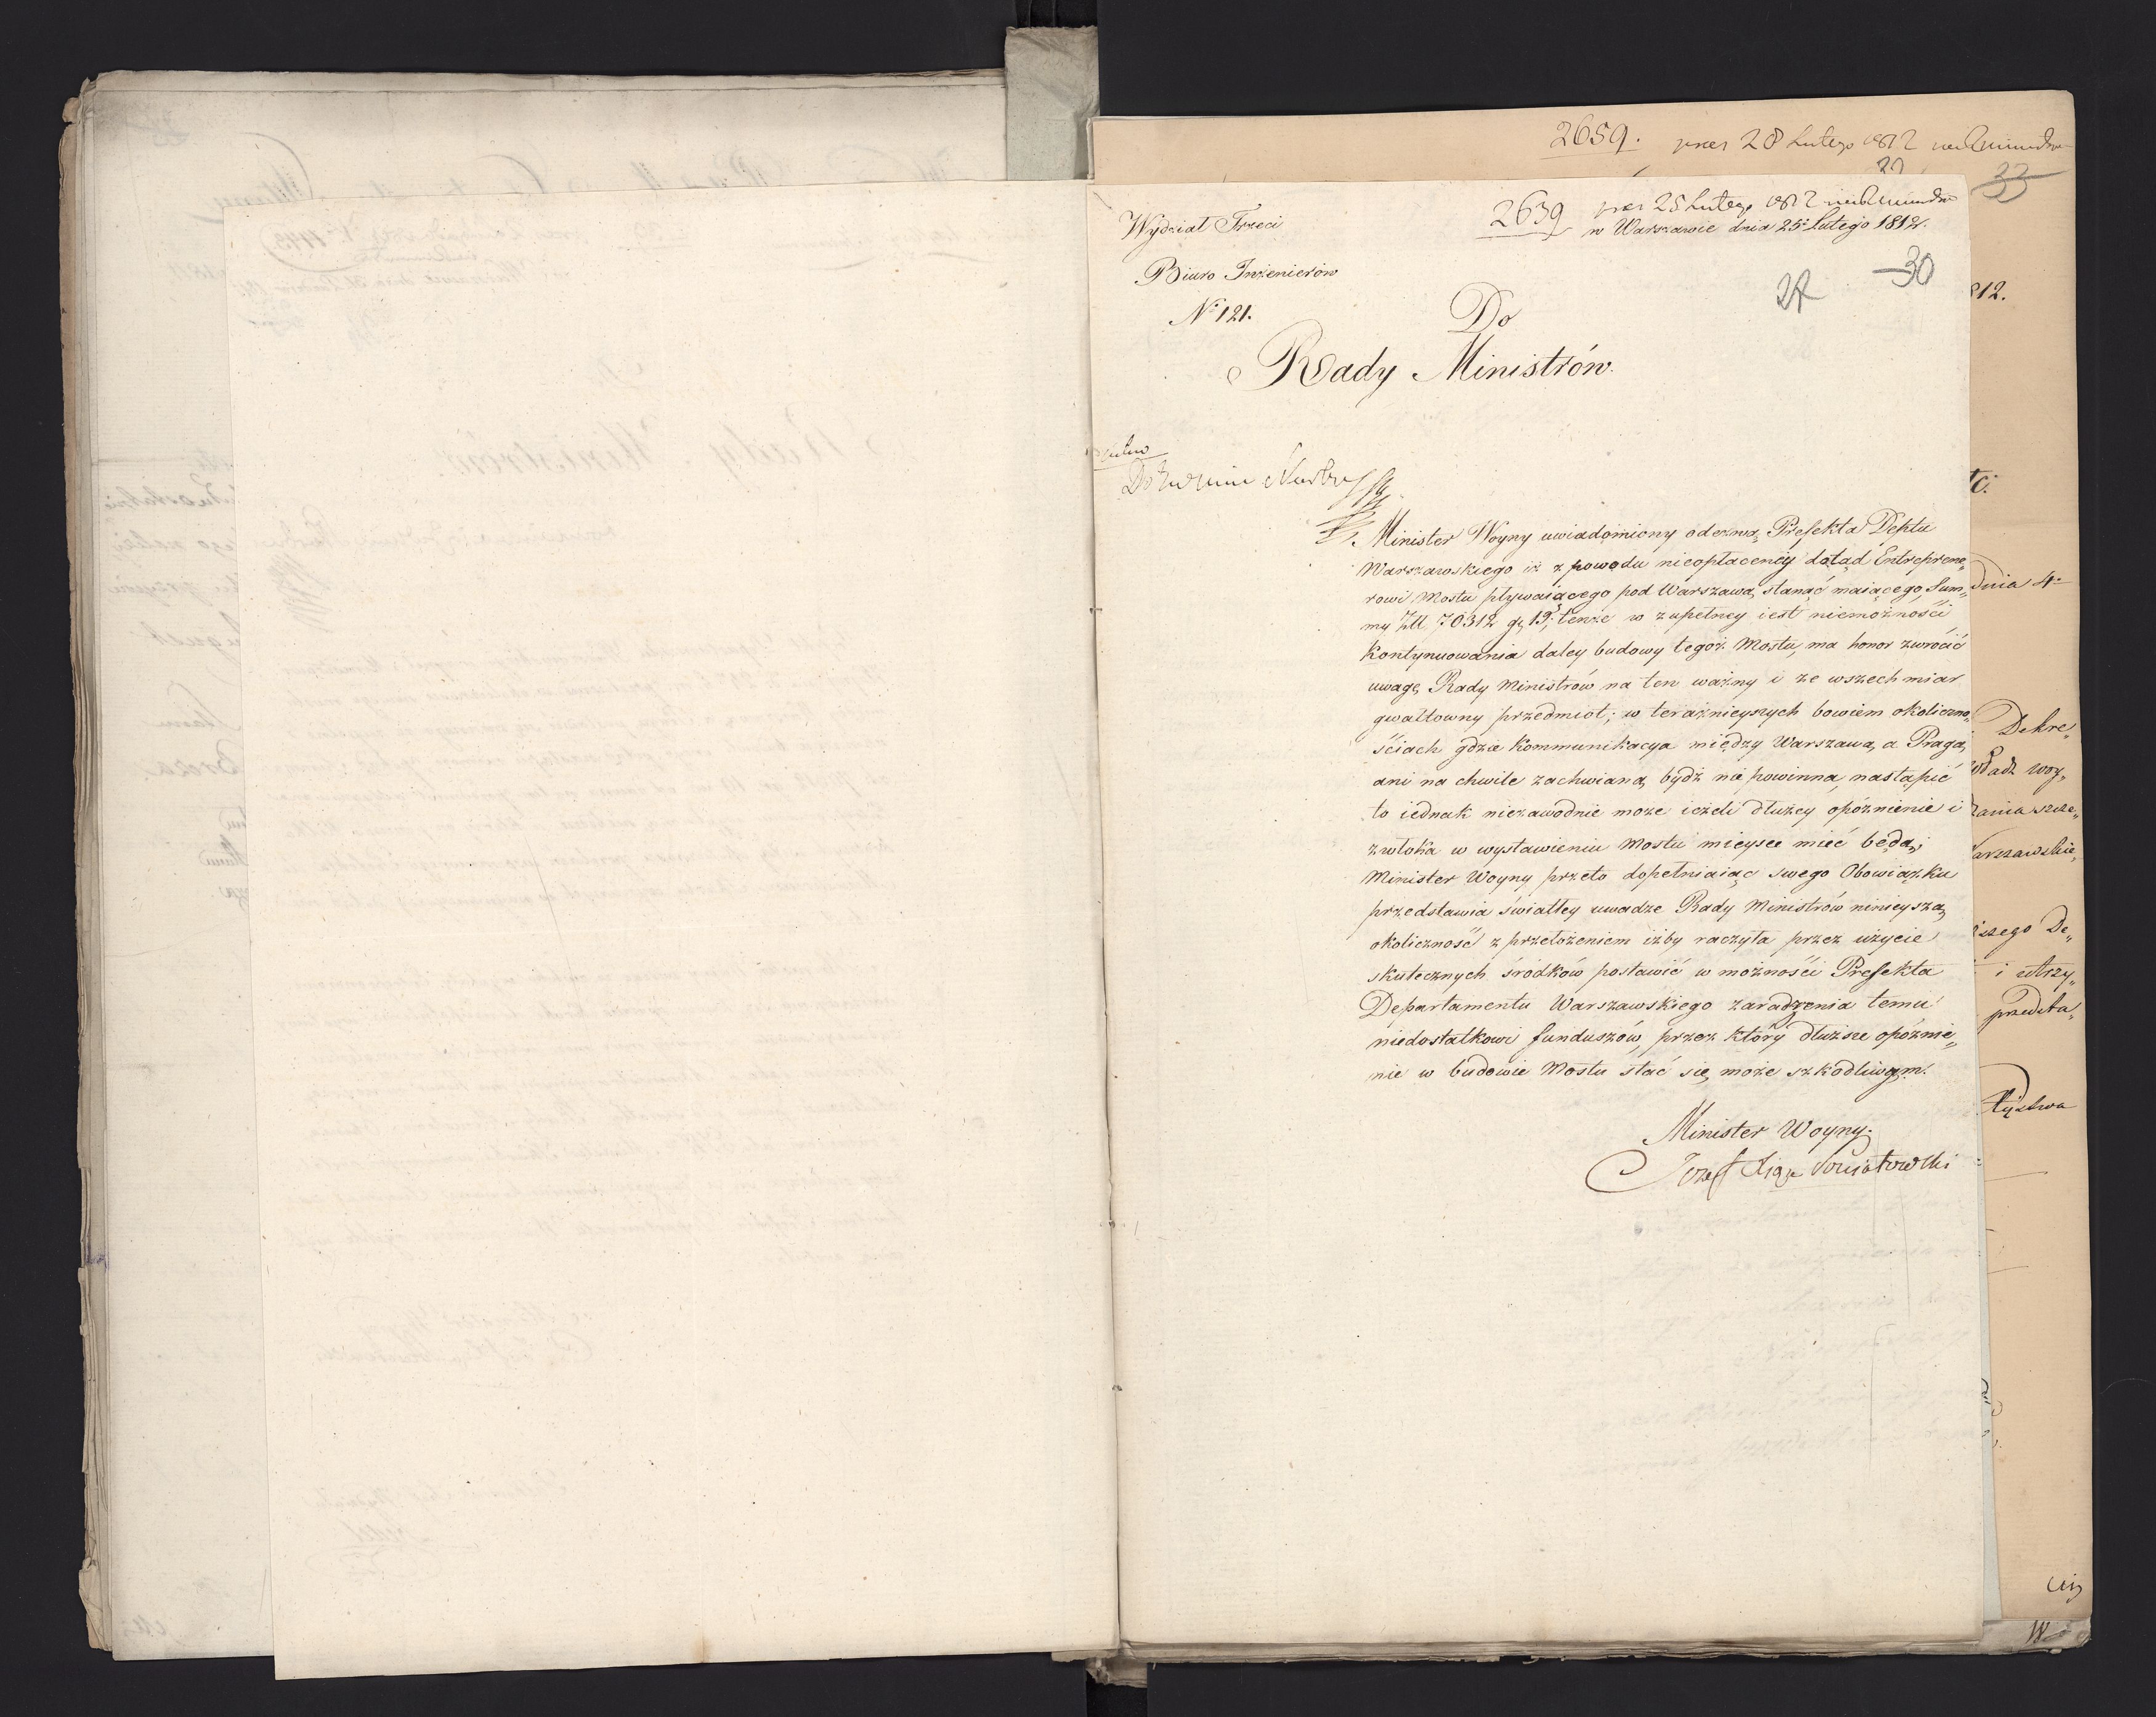 2659. 28 Lutego 1812
33
2639 25 Lutego 1812
Wydział Trzeci
w Warszawie dnia 25 Lutego 1812.
Biuro Inżenierów
30
27
N° 121.
Do
Rady Ministrów.
Minister Woyny uwiadomiony odezwą Prefekta Deptu
Warszawskiego iż z powodu nieopłaconéy dotąd Entreprene„
rowi Mostu pływaiącego pod Warszawą stanąć maiącego, Sum„
my Złł 70312 gr 19, tenże w zupełney iest niemożności
kontynuowania daley budowy tegoż Mostu, ma honor zwrócić
uwagę Rady Ministrów na ten ważny i ze wszech miar
gwałtowny przedmiot; w teraźnieyszych bowiem okoliczno„
ściach gdzie kommunikacya między Warszawą a Pragą,
ani na chwile zachwianą bydź nie powinna, nastąpić
to iednak niezawodnie może ieżeli dłuzey opóźnienie i
zwłoka w wystawieniu Mostu mieysce mieć będą;
Minister Woyny przeto dopełniaiąc swego Obowiązku
przedstawia światłey uwadze Rady Ministrów ninieyszą
okoliczność z przełożeniem iżby raczyła przez użycie
skutecznych środków postawić w możności Prefekta
Departamentu Warszawskiego zaradzenia temu
niedostatkowi funduszów, przez który dłuższe opóźnie„
nie w budowie Mostu stać się może szkodliwym.
Minister Woyny.
Józef Xiąże Poniatowski
812.
dnia 4
Dekre„
woy„
szcze„
arszawskie„
szego De„
i utrzy„
przedsta„